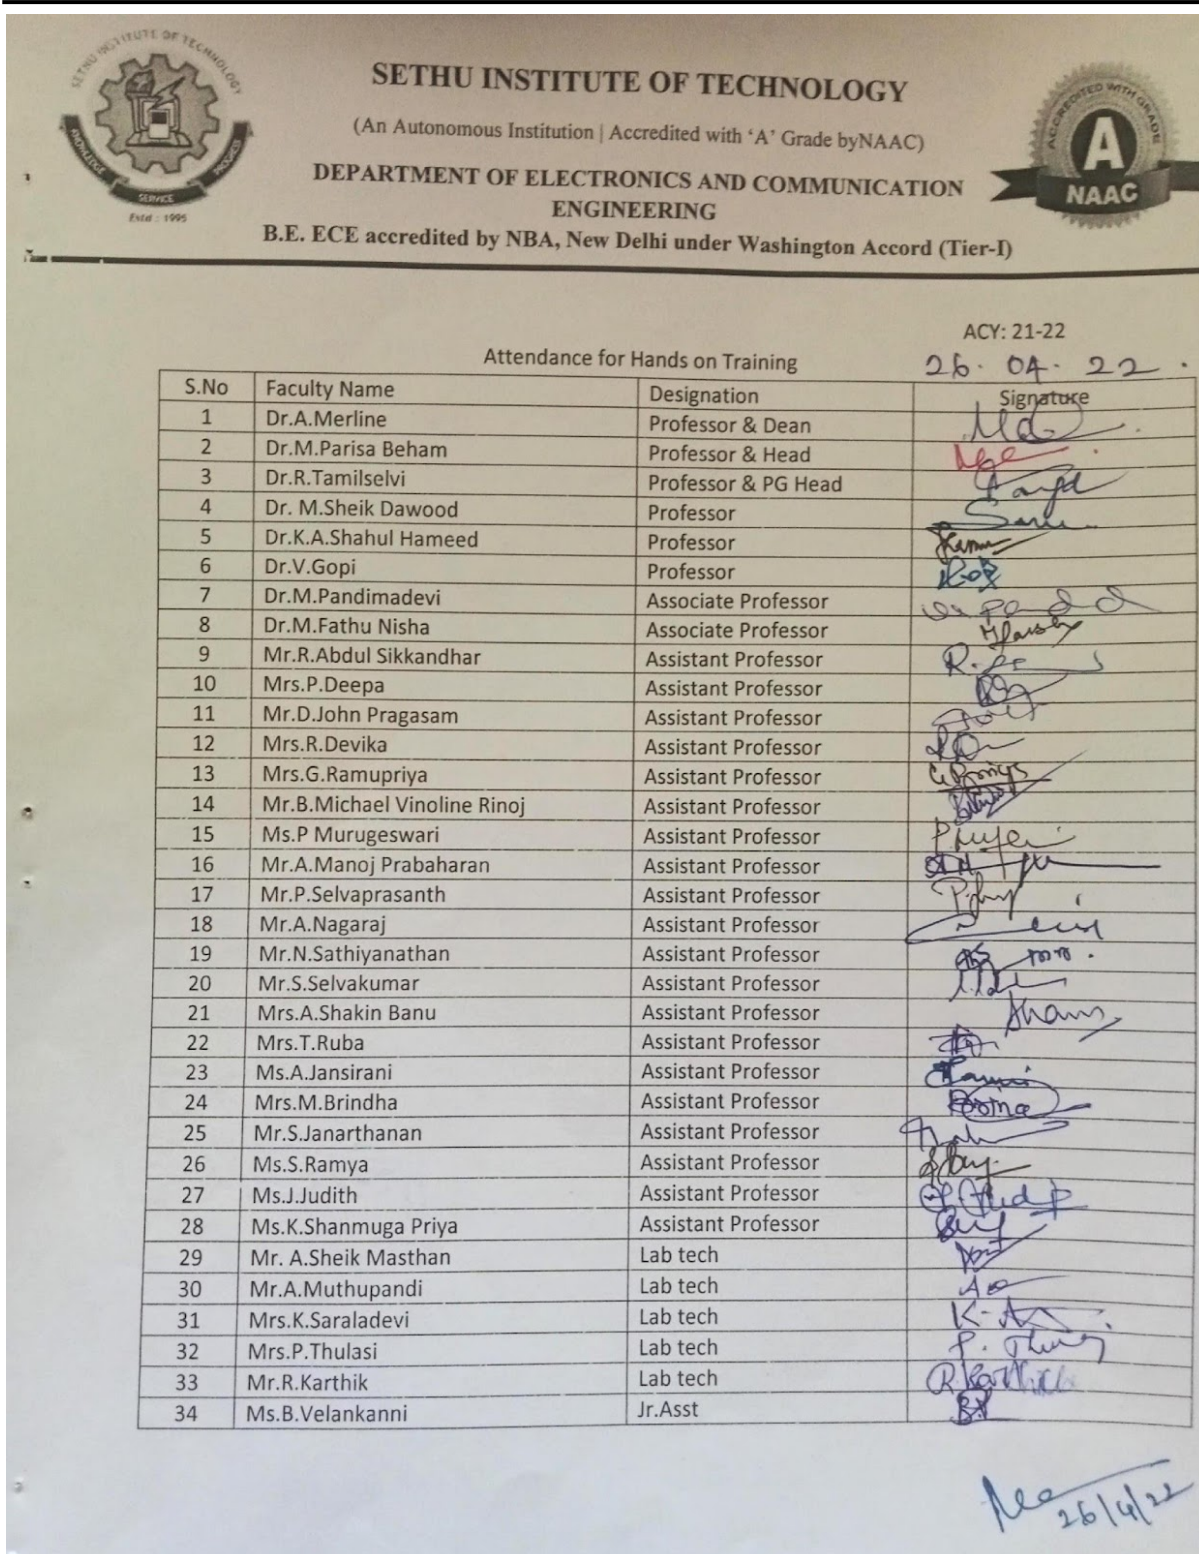 SETHU INSTITUTE OF TECHNOLOGY
KNOWLEDGE
SERVICE
Estd : 1995
SETHU INSTITUTE OF TECHNOLOGY
(An Autonomous Institution | Accredited with ‘A’ Grade byNAAC)
DEPARTMENT OF ELECTRONICS AND COMMUNICATION
ENGINEERING
B.E. ECE accredited by NBA, New Delhi under Washington Accord (Tier-I)
ACCREDITED WITH GRADE
A
NAAC
ACY: 21-22
Attendance for Hands on Training 26. 04. 22.
S.No Faculty Name Designation Signature
1 Dr.A.Merline Professor & Dean
2 Dr.M.Parisa Beham Professor & Head
3 Dr.R.Tamilselvi Professor & PG Head
4 Dr. M.Sheik Dawood Professor
5 Dr.K.A.Shahul Hameed Professor
6 Dr.V.Gopi Professor
7 Dr.M.Pandimadevi Associate Professor
8 Dr.M.Fathu Nisha Associate Professor
9 Mr.R.Abdul Sikkandhar Assistant Professor
10 Mrs.P.Deepa Assistant Professor
11 Mr.D.John Pragasam Assistant Professor
12 Mrs.R.Devika Assistant Professor
13 Mrs.G.Ramupriya Assistant Professor
14 Mr.B.Michael Vinoline Rinoj Assistant Professor
15 Ms.P Murugeswari Assistant Professor
16 Mr.A.Manoj Prabaharan Assistant Professor
17 Mr.P.Selvaprasanth Assistant Professor
18 Mr.A.Nagaraj Assistant Professor
19 Mr.N.Sathiyanathan Assistant Professor
20 Mr.S.Selvakumar Assistant Professor
21 Mrs.A.Shakin Banu Assistant Professor
22 Mrs.T.Ruba Assistant Professor
23 Ms.A.Jansirani Assistant Professor
24 Mrs.M.Brindha Assistant Professor
25 Mr.S.Janarthanan Assistant Professor
26 Ms.S.Ramya Assistant Professor
27 Ms.J.Judith Assistant Professor
28 Ms.K.Shanmuga Priya Assistant Professor
29 Mr. A.Sheik Masthan Lab tech
30 Mr.A.Muthupandi Lab tech
31 Mrs.K.Saraladevi Lab tech
32 Mrs.P.Thulasi Lab tech
33 Mr.R.Karthik Lab tech R.Karthick
34 Ms.B.Velankanni Jr.Asst
26/4/22